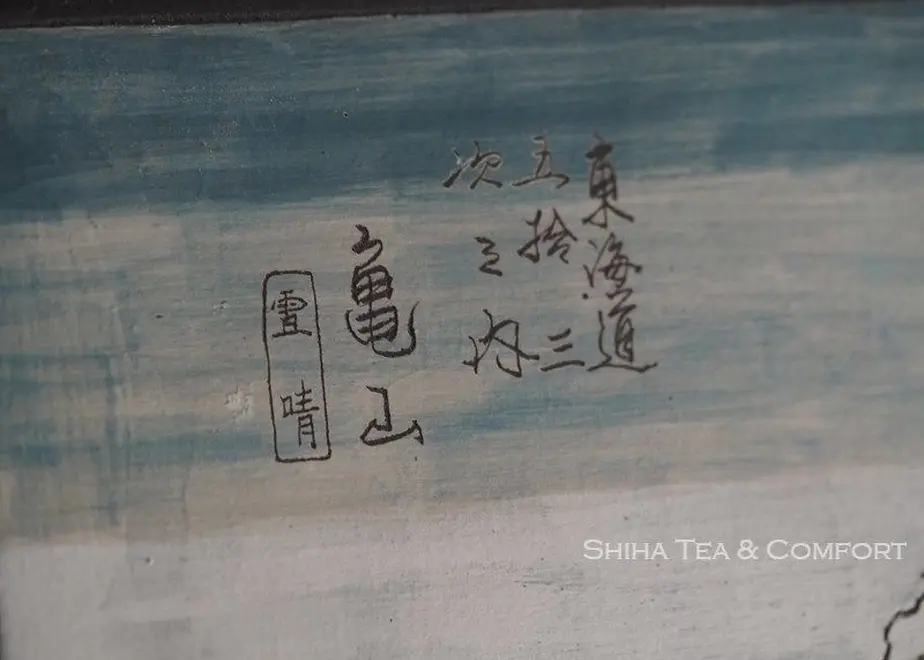 東海道
五拾三
次之内
亀山
雪晴
SHIHA TEA & COMFORT